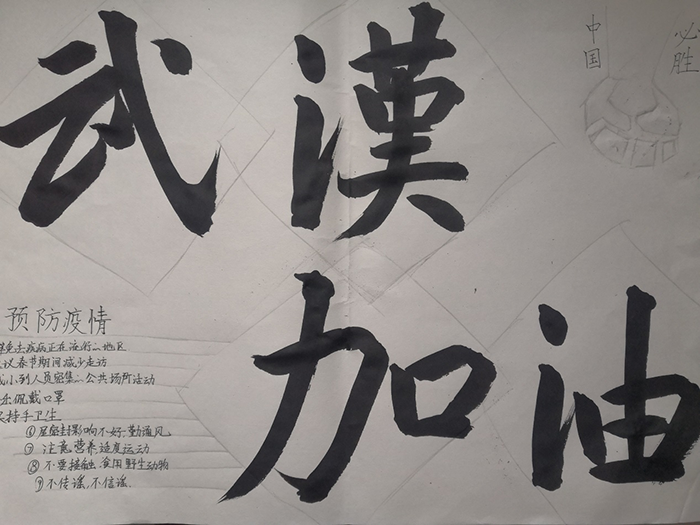 武漢
加油
中国
必胜
预防疫情
避免去疾病正在流行的地区
议春节期间减少走访
减小到人员密集的公共场所活动
佩戴口罩
持手卫生
⑥屋密封影响不好,勤通风
⑦注意营养适度运动
⑧不要接触、食用野生动物
⑨不传谣,不信谣.